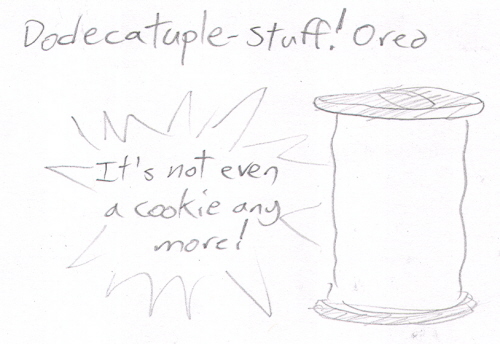 Dodecatuple-stuff! Oreo
It's not even
a cookie any
more!